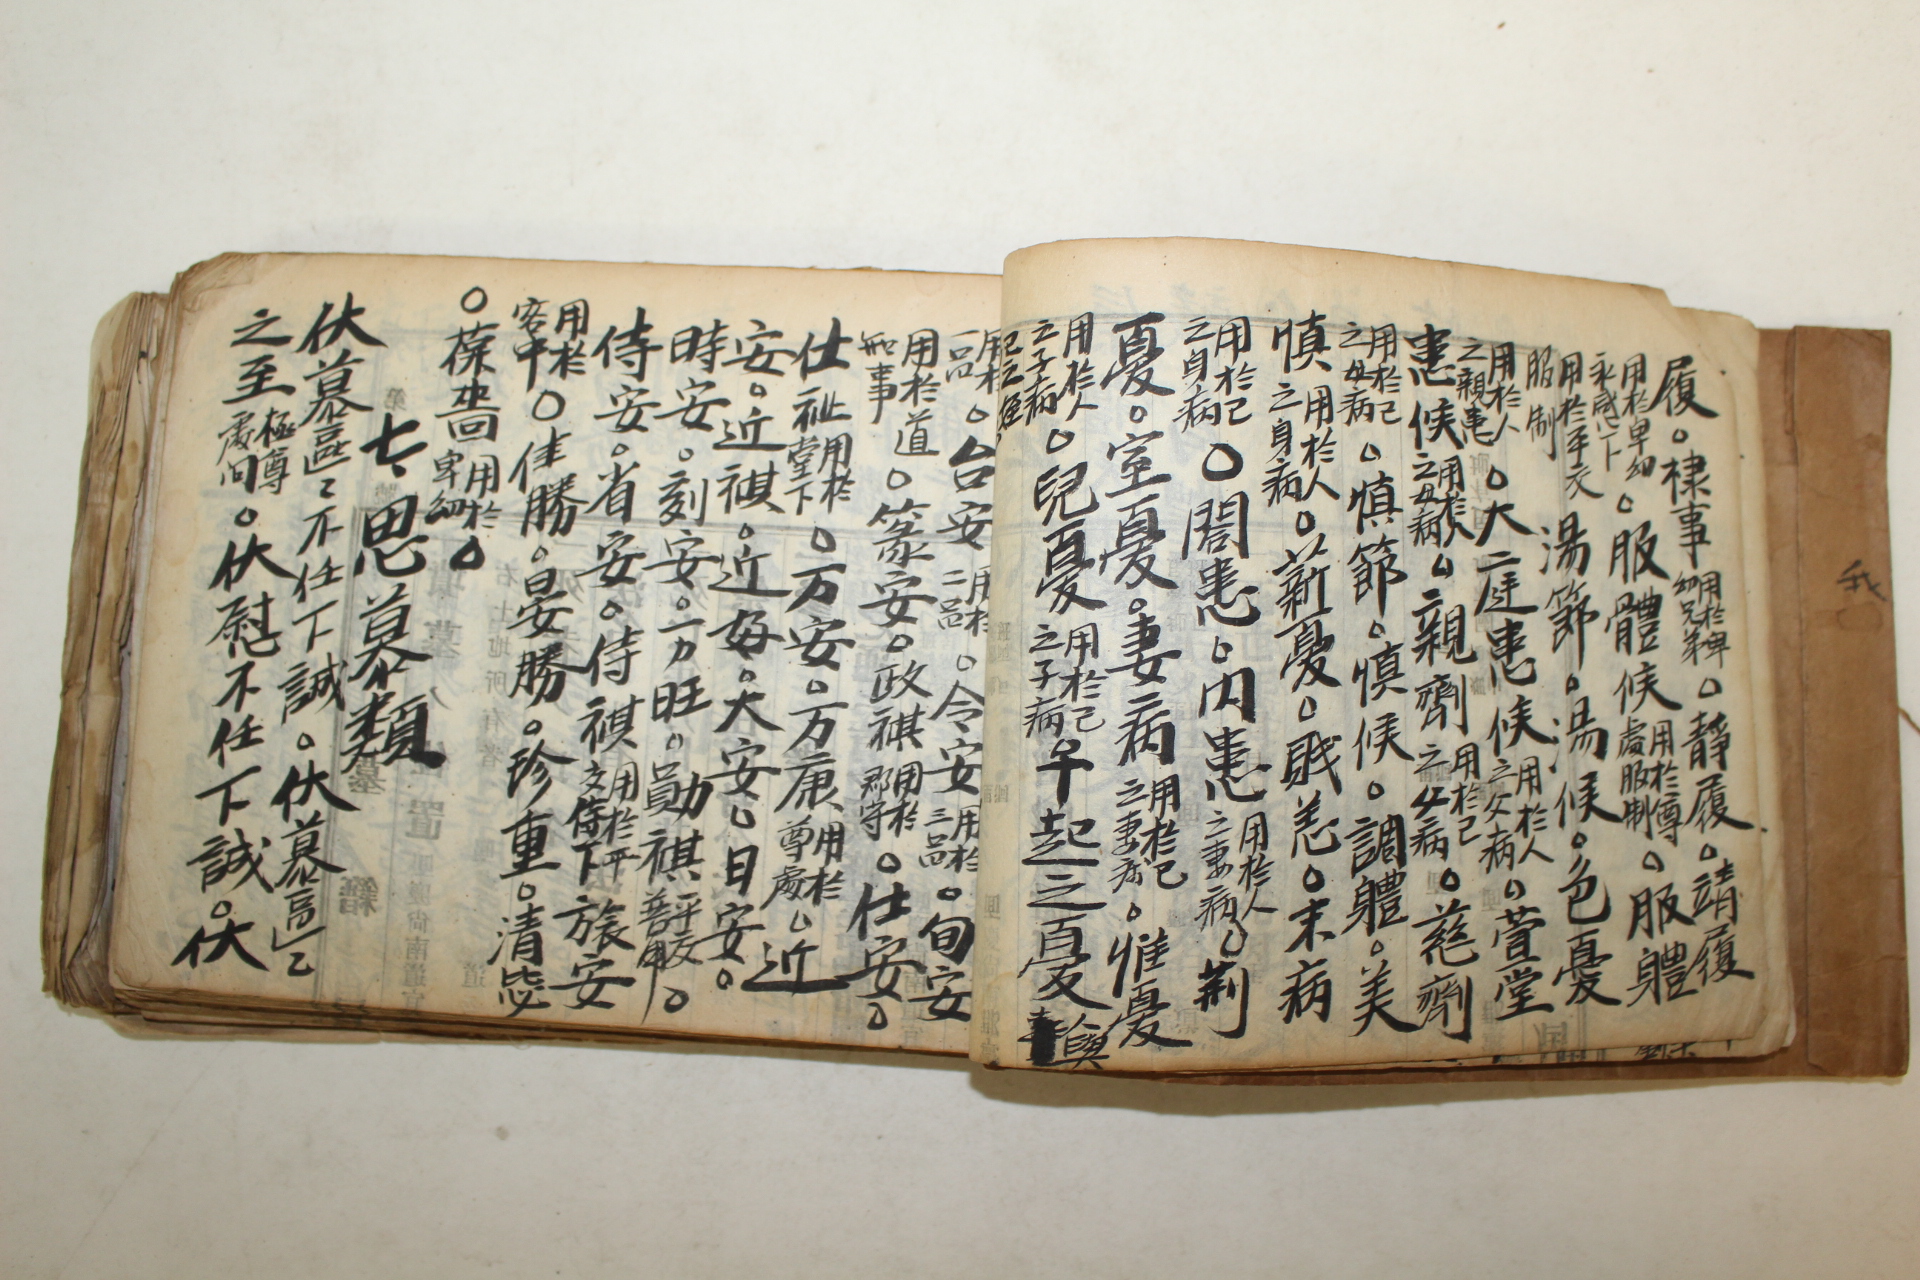 履○棣事用於卑幼兄弟○靜履○靖履
用於卑幼○服體候用於尊處服制○服體
用於平交服制湯節○湯候○色憂
用於人之親患○大庭患候用於人之父病○萱堂
患候用於人之母病○親劑用於己之父病○慈劑
用於己之母病○愼節○愼候○調體○美
愼用於人之身病○薪憂○賤恙○末病
用於己之身病○閤患○內患用於人之妻病○荊
憂○室憂○妻病用於己之妻病○惟憂
用於人之子病○兒憂用於己之子病
用於一品○台安用於二品○令安用於三品○旬安
用於道知事○篆安○政祺用於郡守○仕安○
仕祉用於堂下○万安○万康用於尊處○近
安○近祺○近好○大安○日安○
時安○刻安○万旺○勛祺平交善用○
侍安○省安○侍祺用於平交侍下旅安
用於客中○佳勝○晏勝○珍重○清毖
○葆嗇用於卑幼○
七思慕類
伏慕區〻不任下誠○伏慕區〻
之至極尊處問○伏慰不任下誠○伏
我